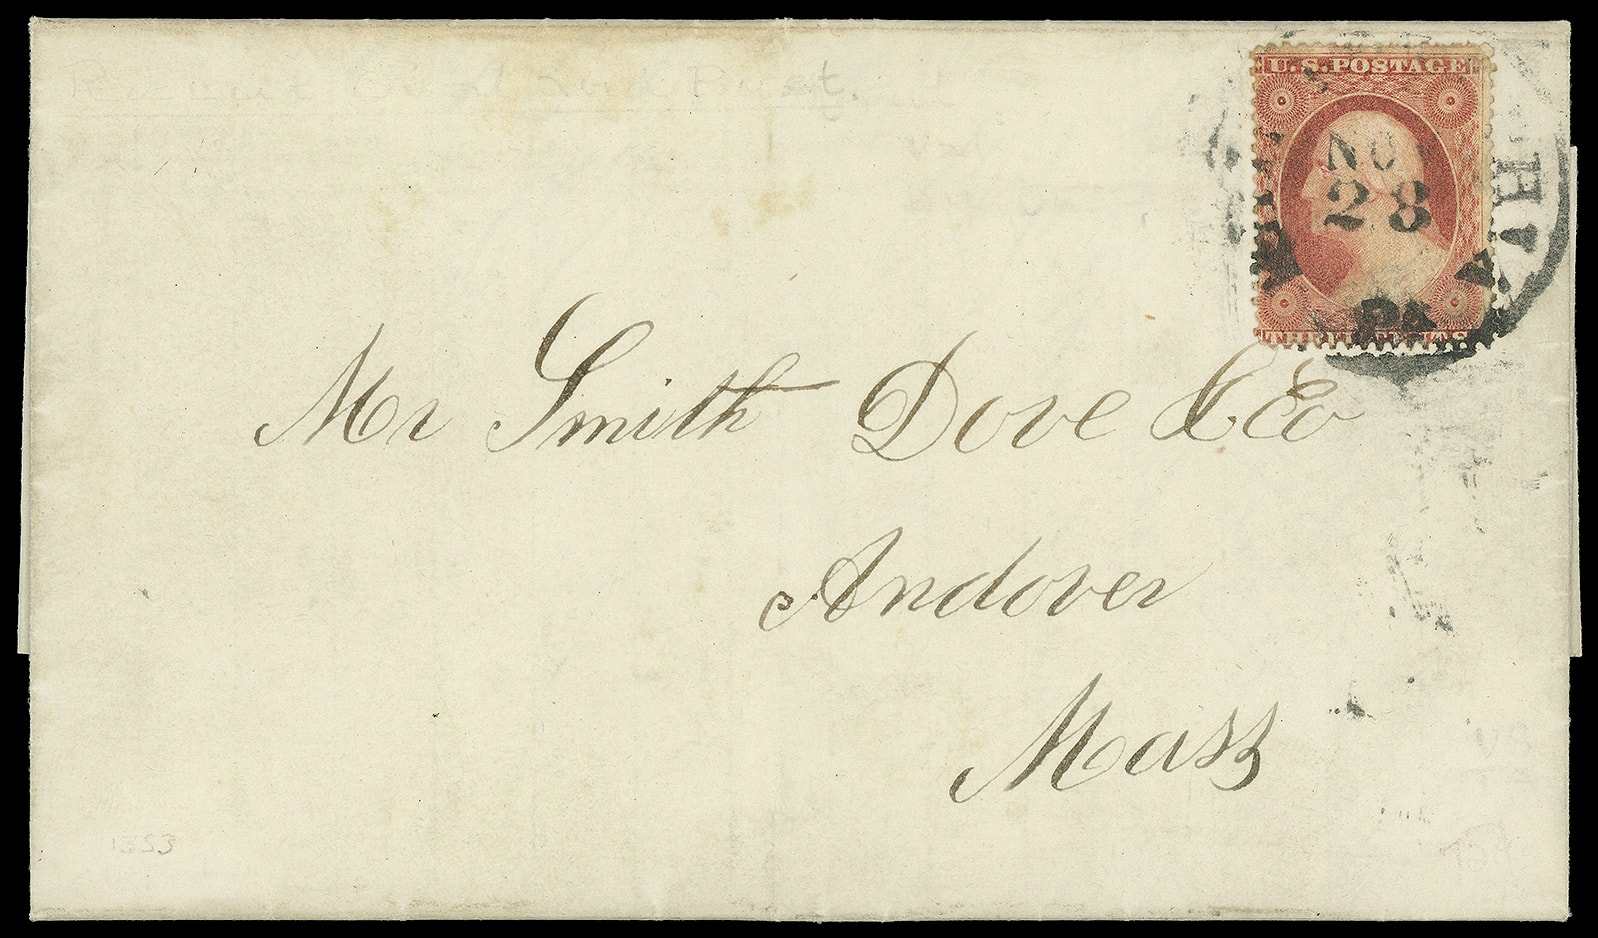 U.S.POSTAGE
NOV
28
Pa
THREE CENTS
Mr Smith Dove & Co
Andover
Mass
1353